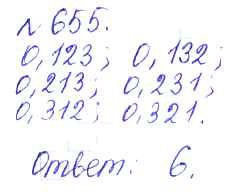 № 655.
0,123; 0,132;
0,213; 0,231;
0,312; 0,321.
Ответ: 6.